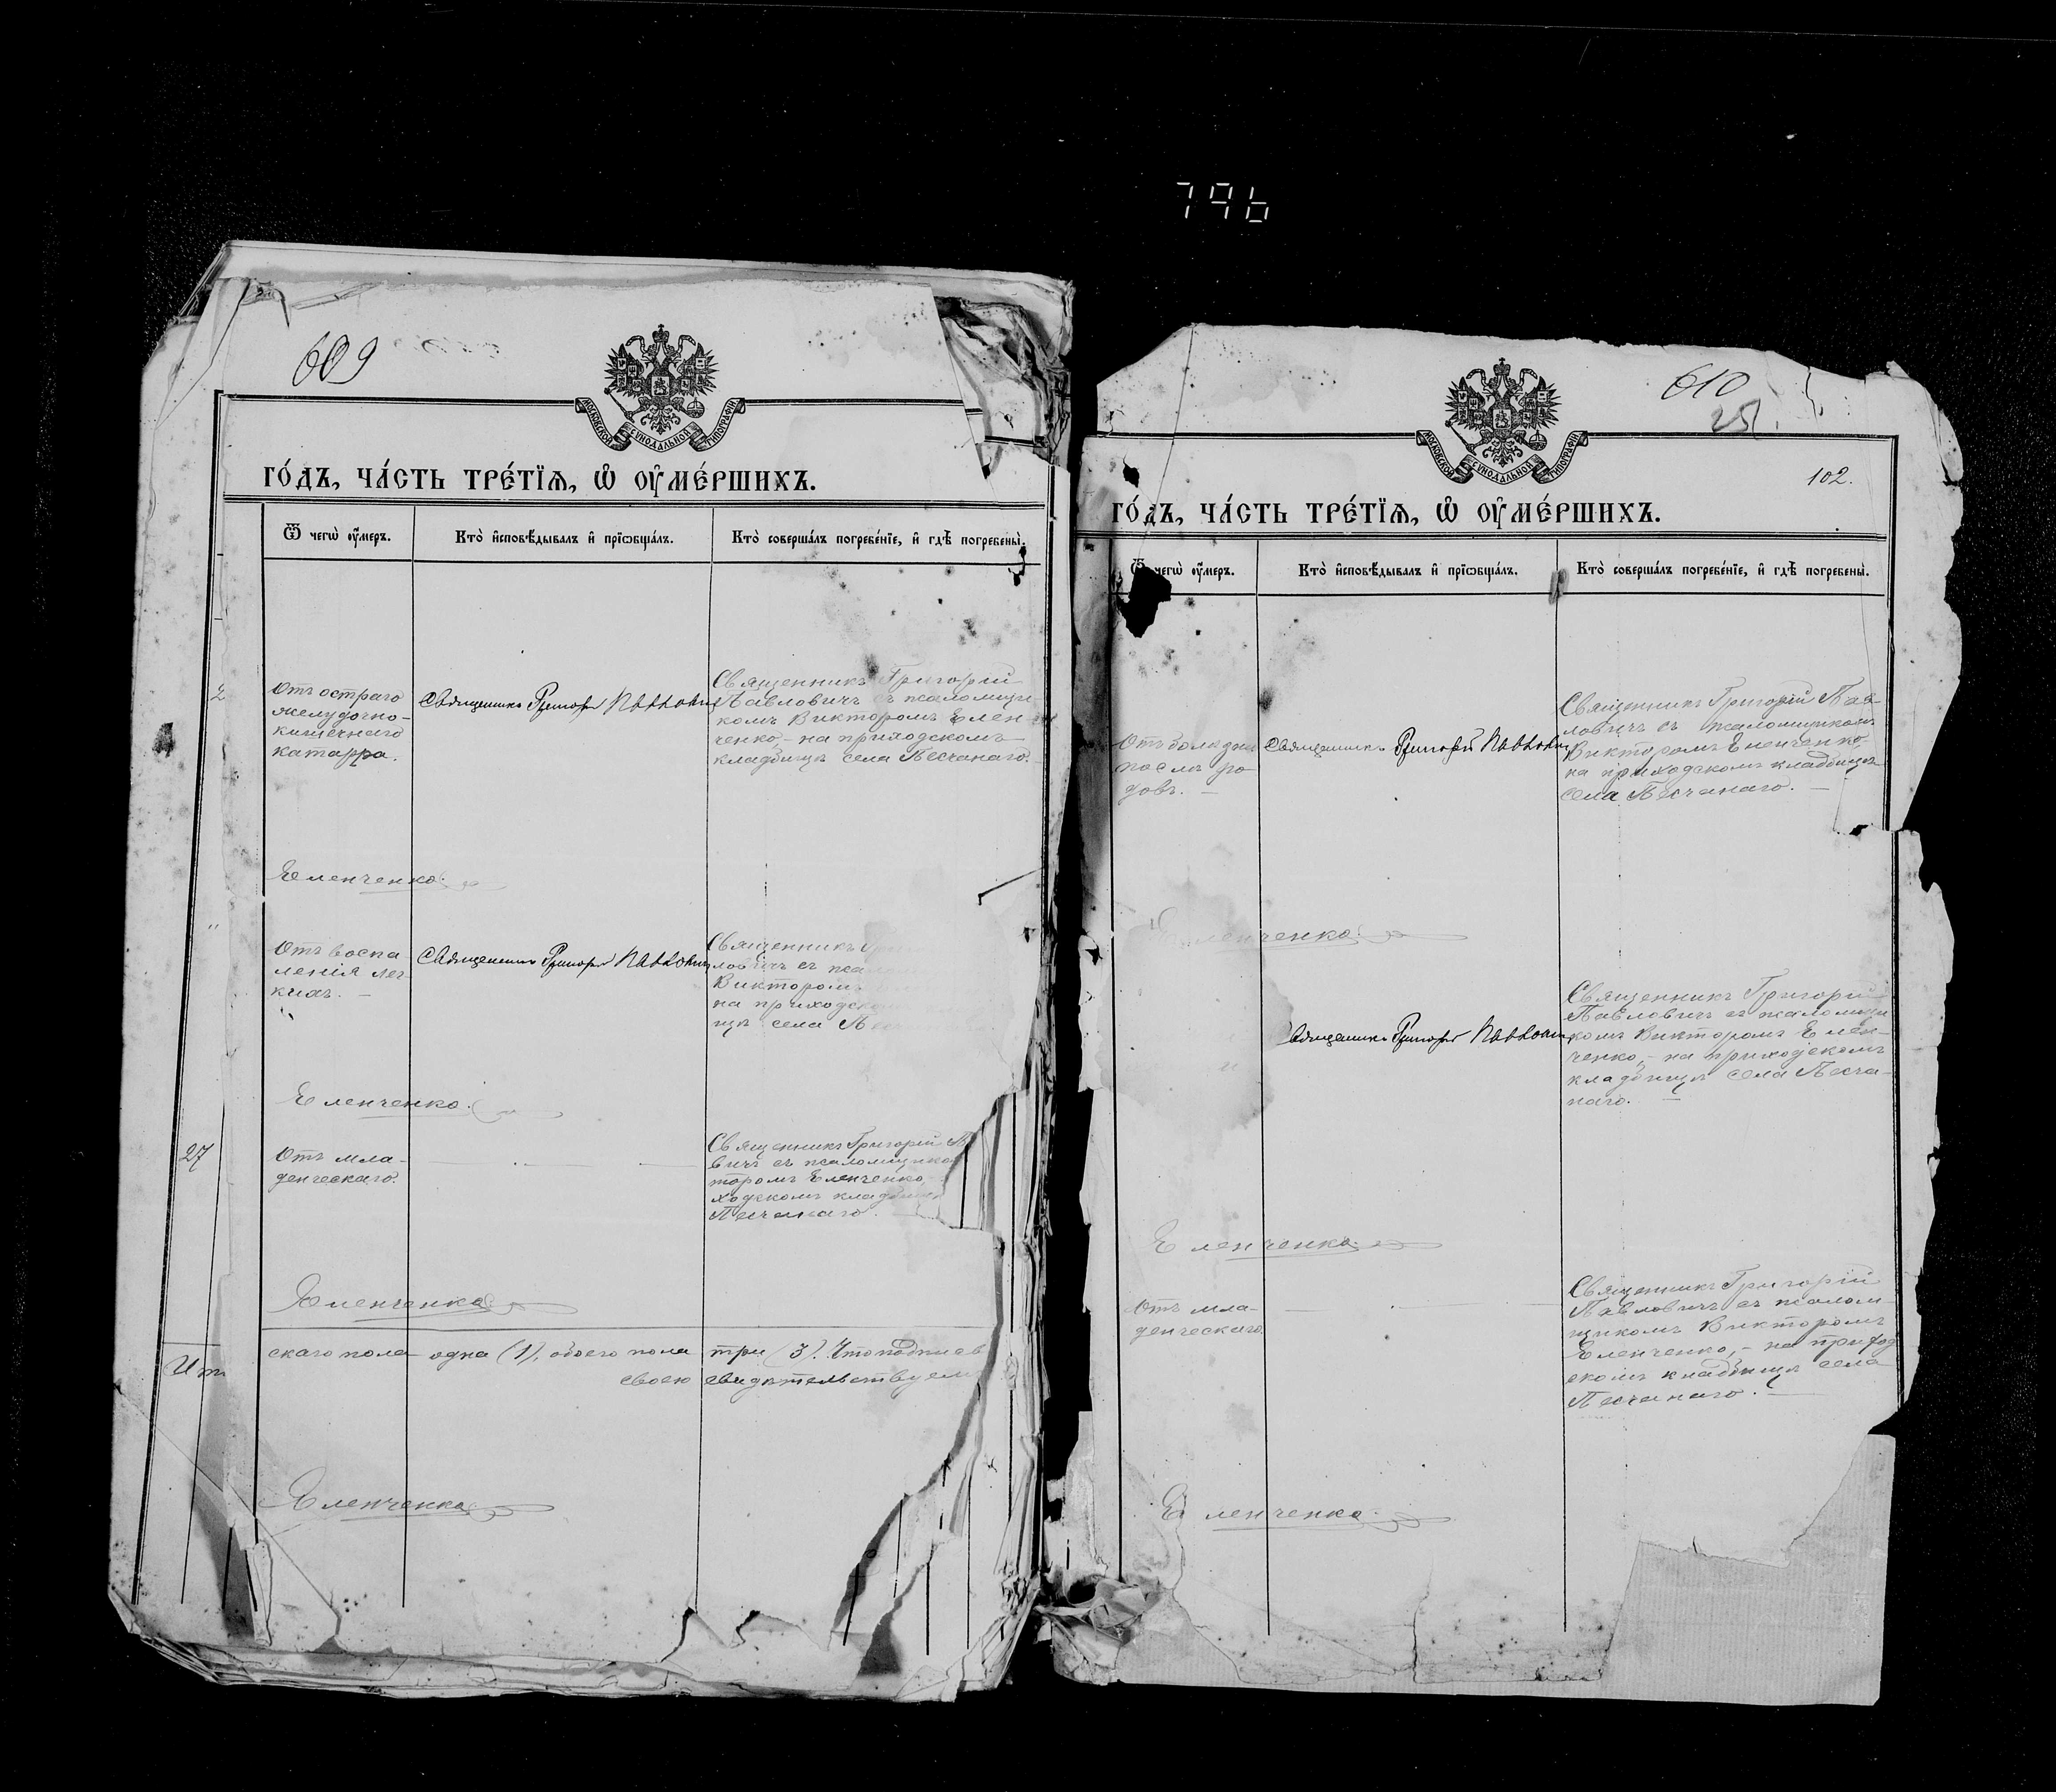 796
609
МОСКОВСКОЙ СѴНОДАЛЬНОЙ ТИПОГРАФІИ
ГО́ДЪ, ЧА́СТЬ ТРЕ́ТЇѦ, Ѽ ОУ҆МЕ́РШИХЪ.
Ѿ чегѡ̀ ѹ҆́меръ.
Кто̀ и҆сповѣ́дывалъ и҆ прїѡбща́лъ.
Кто̀ соверша́лъ погребе́нїе, и҆ гдѣ̀ погребены̀.
2
Отъ остраго
желудочно-
кишечнаго
катарра.
Священникъ Григорій Павловичъ
Священникъ Григорій
Павловичъ съ псаломщи
комъ Викторомъ Елен
ченко,- на приходскомъ
кладбищѣ села Песчанаго.
Еленченко.
"
Отъ воспа
ленія лег
кихъ. —
Священникъ Григорій Павловичъ
Священникъ Гри
ловичъ съ пса
Викторомъ
на приходско
щѣ села Пес
Еленченко.
27
Отъ мла-
денческаго.
Священникъ Григорій П
вичъ съ псаломщико
торомъ Еленченко,
ходскомъ кладбищѣ
Песчанаго.
Еленченко
Ит
скаго пола одна (1), обоего пола три (3). Что подписью
своею свидѣтельствуемъ
Еленченко
610
25
МОСКОВСКОЙ СѴНОДАЛЬНОЙ ТИПОГРАФІИ
102.
ГО́ДЪ, ЧА́СТЬ ТРЕ́ТЇѦ, Ѽ ОУ҆МЕ́РШИХЪ.
Ѿ чегѡ̀ ѹ҆́меръ.
Кто̀ и҆сповѣ́дывалъ и҆ прїѡбща́лъ.
Кто̀ соверша́лъ погребе́нїе, и҆ гдѣ̀ погребены̀.
Отъ болѣзни
послѣ ро
довъ. —
Священникъ Григорій Павловичъ
Священникъ Григорій Пав-
ловичъ съ псаломщикомъ
Викторомъ Еленченко,
на приходскомъ кладбищѣ
села Песчанаго. —
Еленченко.
"
Священникъ Григорій Павловичъ
Священникъ Григорій
Павловичъ съ псаломщи
комъ Викторомъ Елен-
ченко,- на приходскомъ
кладбищѣ села Песча-
наго. —
Еленченко.
Отъ мла-
денческаго.
Священникъ Григорій
Павловичъ съ псалом
щикомъ Викторомъ
Еленченко,- на приход
скомъ кладбищѣ села
Песчанаго. —
Еленченко.